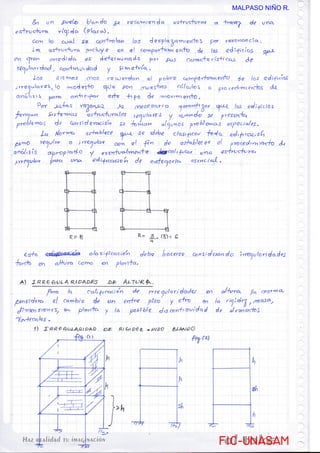 MALPASO NIÑO R.
En un suelo blando se recomienda estructurar a través de una
estructura rígida (Placas).
Con lo cual se controlan los desplazamientos por resonancia.
La estructura incluye en el comportamiento de los edificios que
en gran medida es determinada por sus características de
regularidad, continuidad y simetría.
Los sismos nos recuerdan el pobre comportamiento de los edificios
irregulares, lo modesto que son nuestros cálculos o procedimientos de
análisis para anticipar este tipo de movimiento.
Por estas razones es necesario garantizar que los edificios
tengan sistemas estructurales regulares y cuando se presenta
problemas de consideración se toman algunos problemas especiales.
La Norma establece que se debe clasificar toda edificación
como regular o irregular con el fin de establecer el procedimiento de
análisis apropiado y eventualmente una estructura
irregular para una edificación de categoría esencial.
R = 8
R = 3/4 (8) = 6
Esta clasificación debe hacerse considerando irregularidades
tanto en altura como en planta.
A) IRREGULARIDADES DE ALTURA.
Para la calificación de irregularidades en altura, la norma
considera el cambio de un entre piso y otro en la rigidez, masa,
dimensiones, en planta y la posible discontinuidad de elementos
verticales.
1) IRREGULARIDAD DE RIGIDEZ - PISO BLANDO
fig (1)
fig (2)
h
h
h
2h
h
Haz realidad tu imaginación
FIC-UNASAM